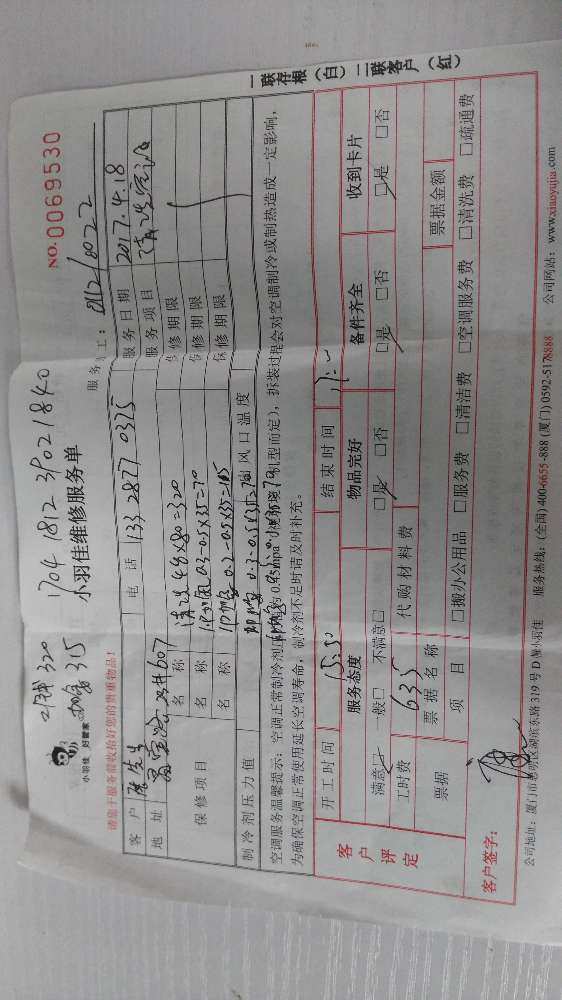 一联存根（白） 二联客户（红）
NO.0069530
1704 1812 3902 1840
320
加氨 315
小羽佳 好管家
小羽佳维修服务单
请您于服务前收拾好您的贵重物品！
客户 先生 电话 133 2877 0325 服务日期 2017.4.18
地址 607 服务项目
保修项目
名称 清洗 4台×80=320 保修期限
名称 0.3-0.5×35=70 保修期限
名称 0.2-0.5×35=105 保修期限
制冷剂压力值 出风口温度
空调服务温馨提示：空调正常制冷剂 0.45mpa 机型而定），拆装过程会对空调制冷或制热造成一定影响，
为确保空调正常使用延长空调寿命，制冷剂不足时请及时补充。
客户评定
开工时间 15:30 结束时间 17:
服务态度 物品完好 备件齐全 收到卡片
满意□ 一般□ 不满意□ □是 □否 □是 □否 □是 □否
工时费 635 代购材料费
票据 票据名称 票据金额
项目 □搬办公用品 □服务费 □清洁费 □空调服务费 □清洗费 □疏通费
客户签字：
公司地址：厦门市思明区湖滨东路319号D 小羽佳 服务热线：(全国) 400-6655-888 (厦门) 0592-5178888 公司网站：www.xiaoyujia.com